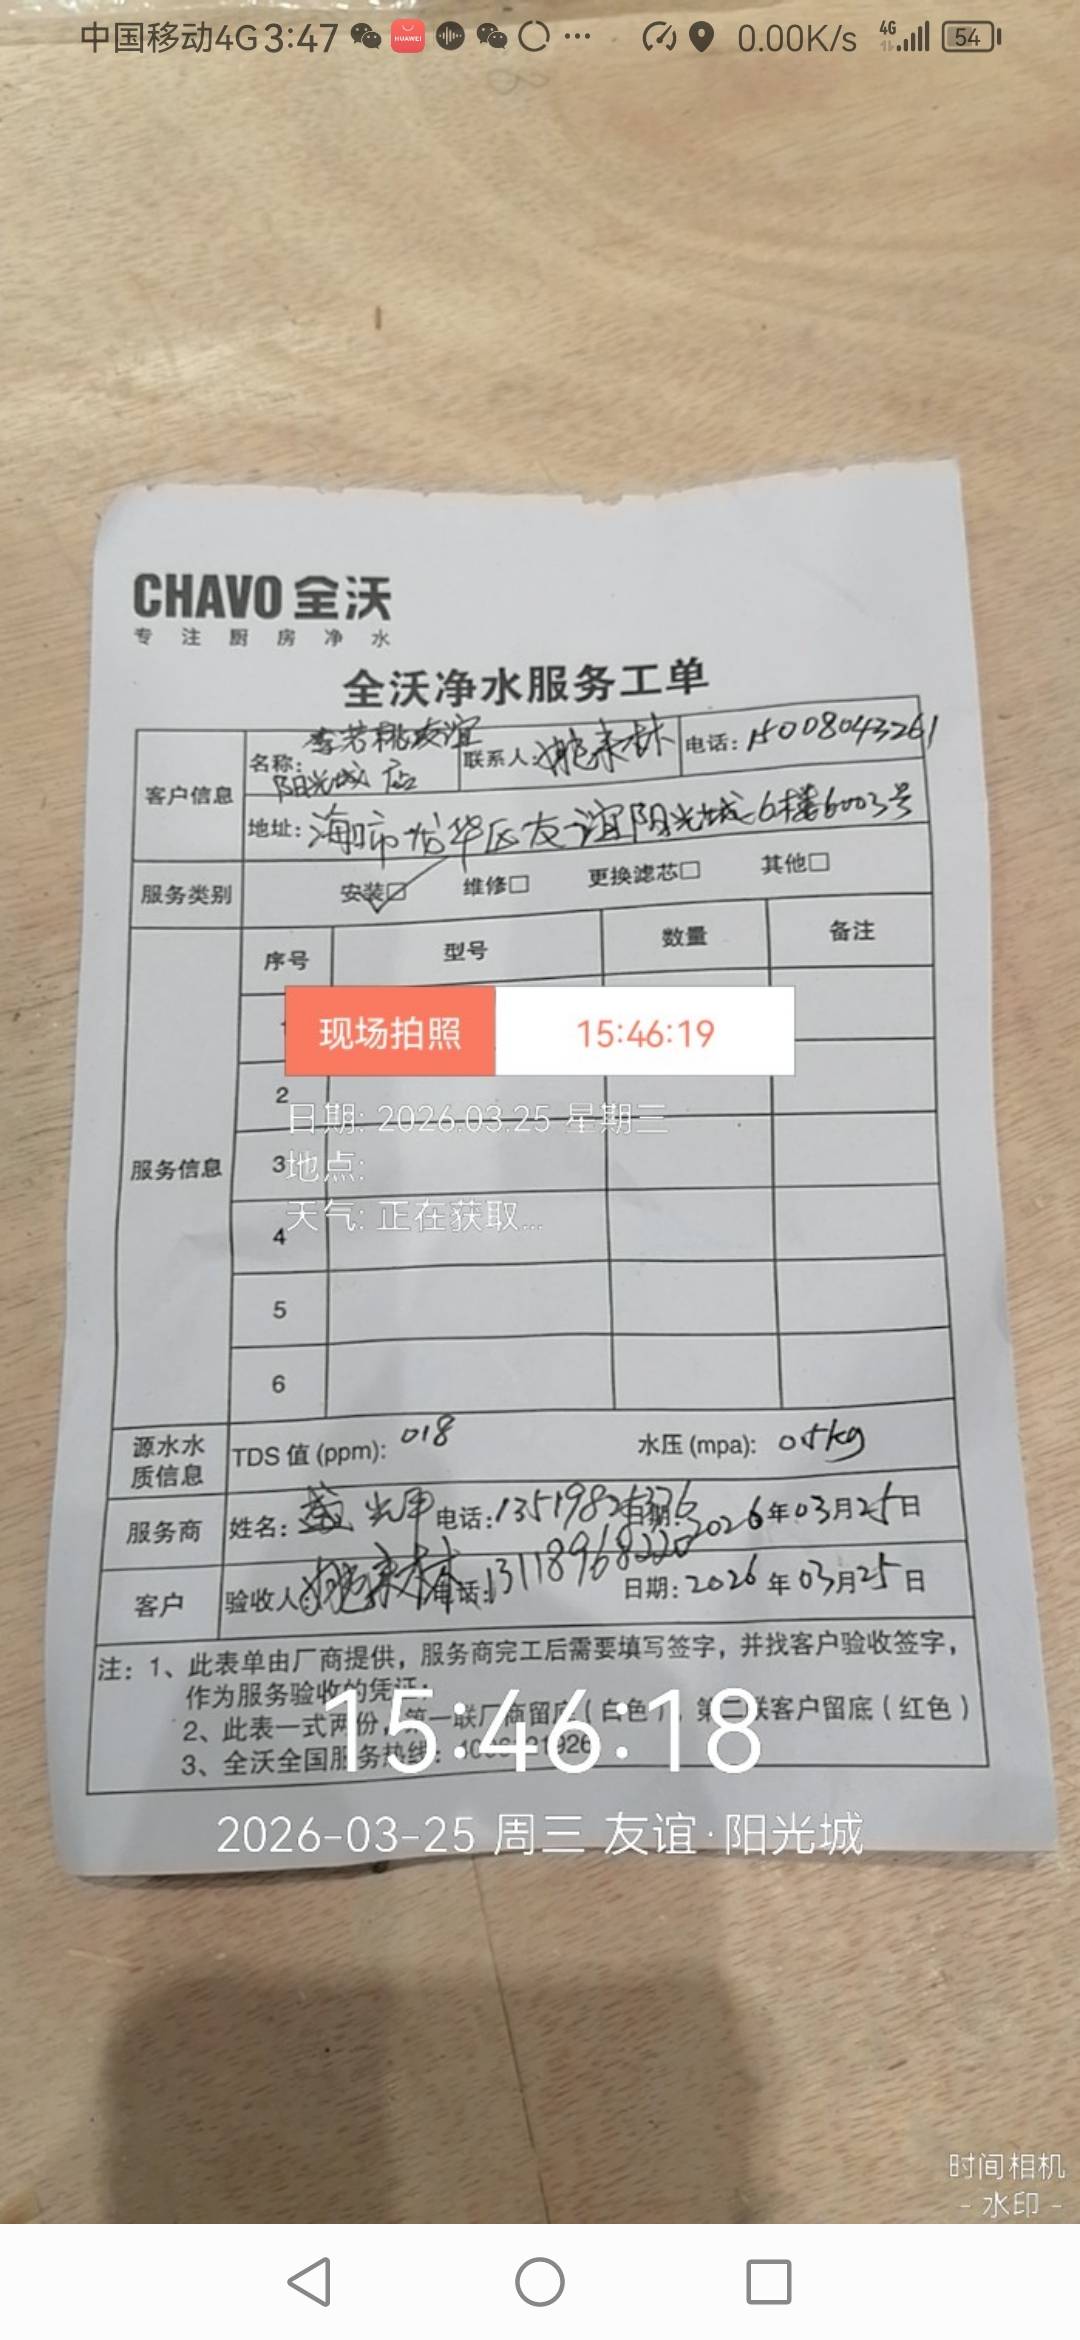 中国移动4G 3:47
0.00K/s 4G 54
CHAVO 全沃
专注厨房净水
全沃净水服务工单
客户信息
名称: 李若桃友谊阳光城店 联系人: 姚来林 电话: 15008043261
地址: 海口市龙华区友谊阳光城6楼6003号
服务类别 安装☑ 维修□ 更换滤芯□ 其他□
服务信息
序号 型号 数量 备注
现场拍照 15:46:19
2
日期: 2026.03.25 星期三
3
地点:
天气: 正在获取...
4
5
6
源水水质信息 TDS 值 (ppm): 018 水压 (mpa): 05kg
服务商 姓名: 电话: 日期: 2026年03月25日
客户 验收人: 姚来林 电话: 13118968220 日期: 2026年03月25日
注: 1、此表单由厂商提供，服务商完工后需要填写签字，并找客户验收签字，
作为服务验收的凭证;
2、此表一式两份，第一联厂商留底（白色），第二联客户留底（红色）
3、全沃全国服务热线:
15:46:18
2026-03-25 周三 友谊·阳光城
时间相机
- 水印 -